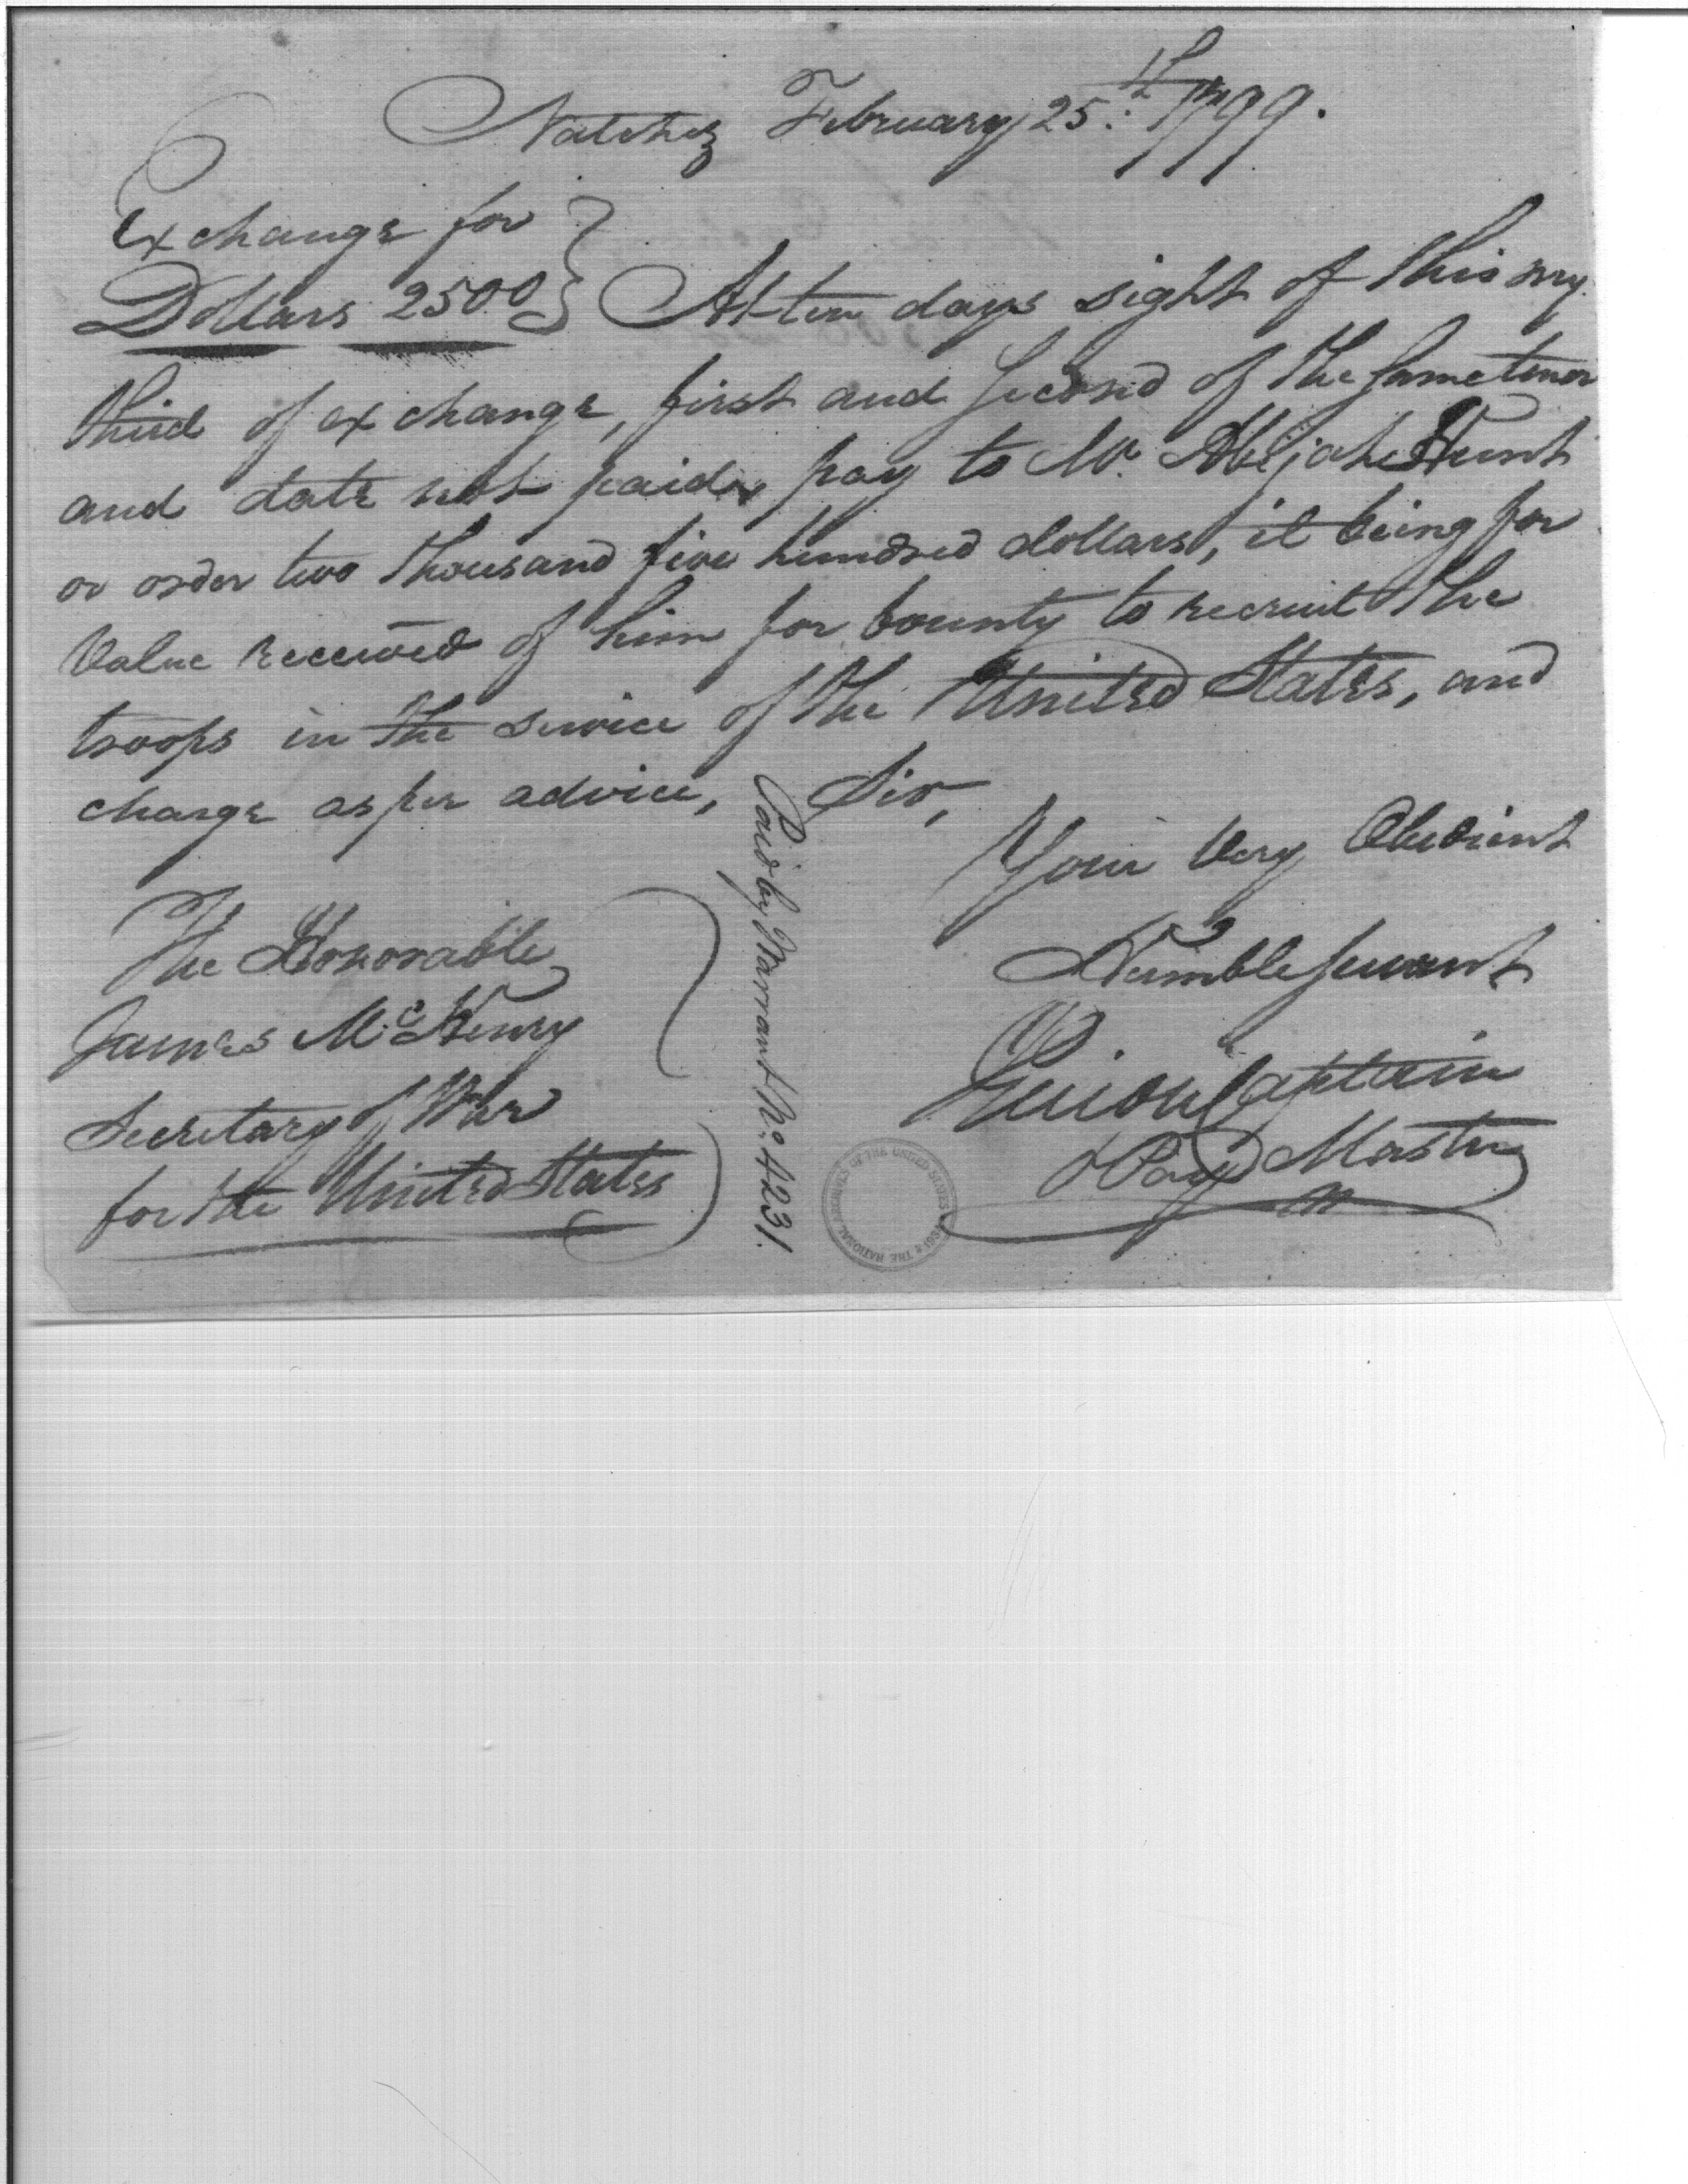 Natchez February 25th 1799.
Exchange for
Dollars 2500 } At ten days sight of this my
third of exchange, first and second of the same tenor
and date not paid, pay to Mr. Abijah Hunt
or order two thousand five hundred dollars, it being for
Value received of him for bounty to recruit the
troops in the service of the United States, and
charge as per advice, Sir,
Your Very Obedient
Humble servant
Guion Captain
Pay Master
The Honorable
James McHenry
Secretary of War
for the United States
Paid by Warrant No. 4231.
THE NATIONAL ARCHIVES OF THE UNITED STATES